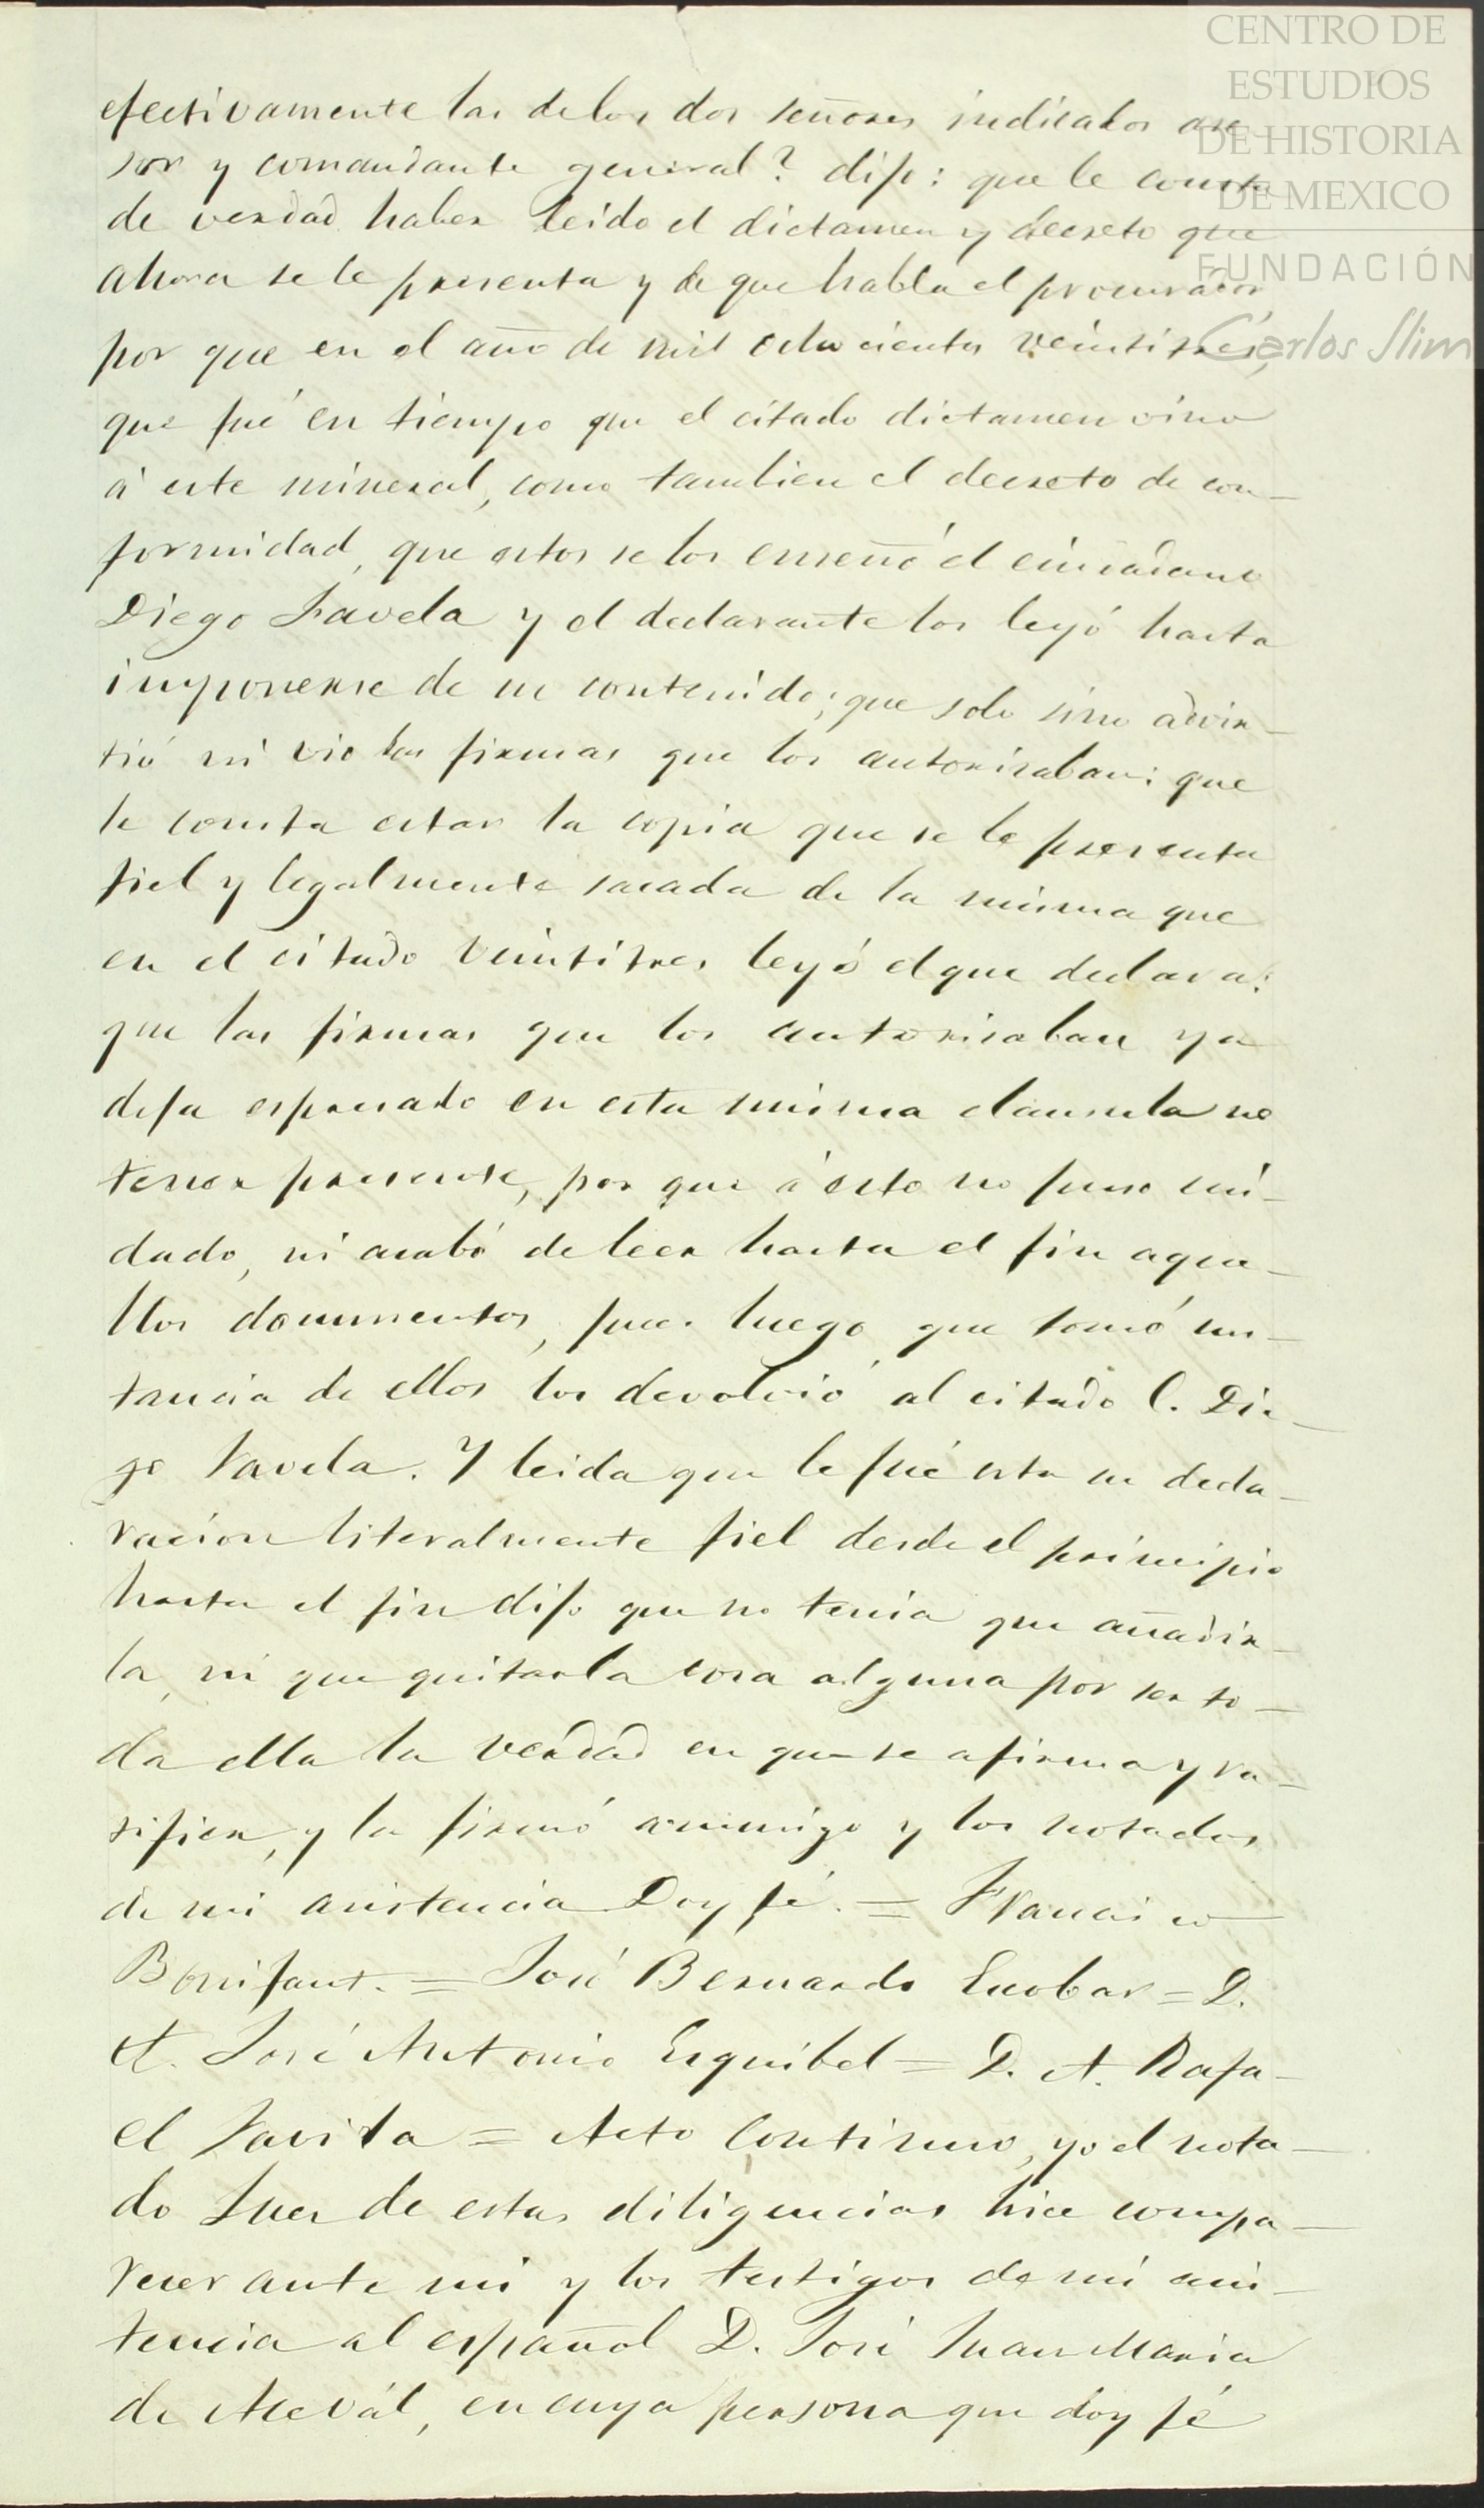 CENTRO DE
ESTUDIOS
DE HISTORIA
DE MEXICO
FUNDACIÓN
Carlos Slim
efectivamente las de los dos señores indicados ase
sor y comandante general? dijo: que le consta
de verdad haber leido el dictamen y decreto que
ahora se le presenta y de que habla el procurador
por que en el año de mil ochocientos veintitres,
que fué en tiempo que el citado dictamen vino
á este mineral, como tambien el decreto de con-
formidad, que estos se los enseñó el ciudadano
Diego Favela y el declarante los leyó hasta
imponerse de su contenido; que solo si no advir-
tió ni vio las firmas que los autorisaban: que
le consta estar la copia que se le presenta
fiel y legalmente sacada de la misma que
en el citado veintitres leyó el que declara:
que las firmas que los autorisaban ya
deja espresado en esta misma clausula no
tener presente, por que á esto no puso cui-
dado, ni acabó de leer hasta el fin aque-
llos documentos, pues luego que tomó ins-
tancia de ellos los devolvió al citado C. Die-
go Favela. Y leida que le fué esta su decla-
racion literalmente fiel desde el principio
hasta el fin dijo que no tenia que añadir-
la, ni que quitarla cosa alguna por ser to-
da ella la verdad en que se afirma y ra-
tifica, y la firmó conmigo y los notados
de mi asistencia Doy fé. = Francisco
Bonifant. = José Bernardo Escobar = D.
A. José Antonio Esquibel = D. A. Rafa-
el Favila = Acto Continuo, yo el nota-
do Juez de estas diligencias hice compa-
recer ante mi y los testigos de mi asis-
tencia al español D. José Juan Maria
de Aleval, en cuya persona que doy fé